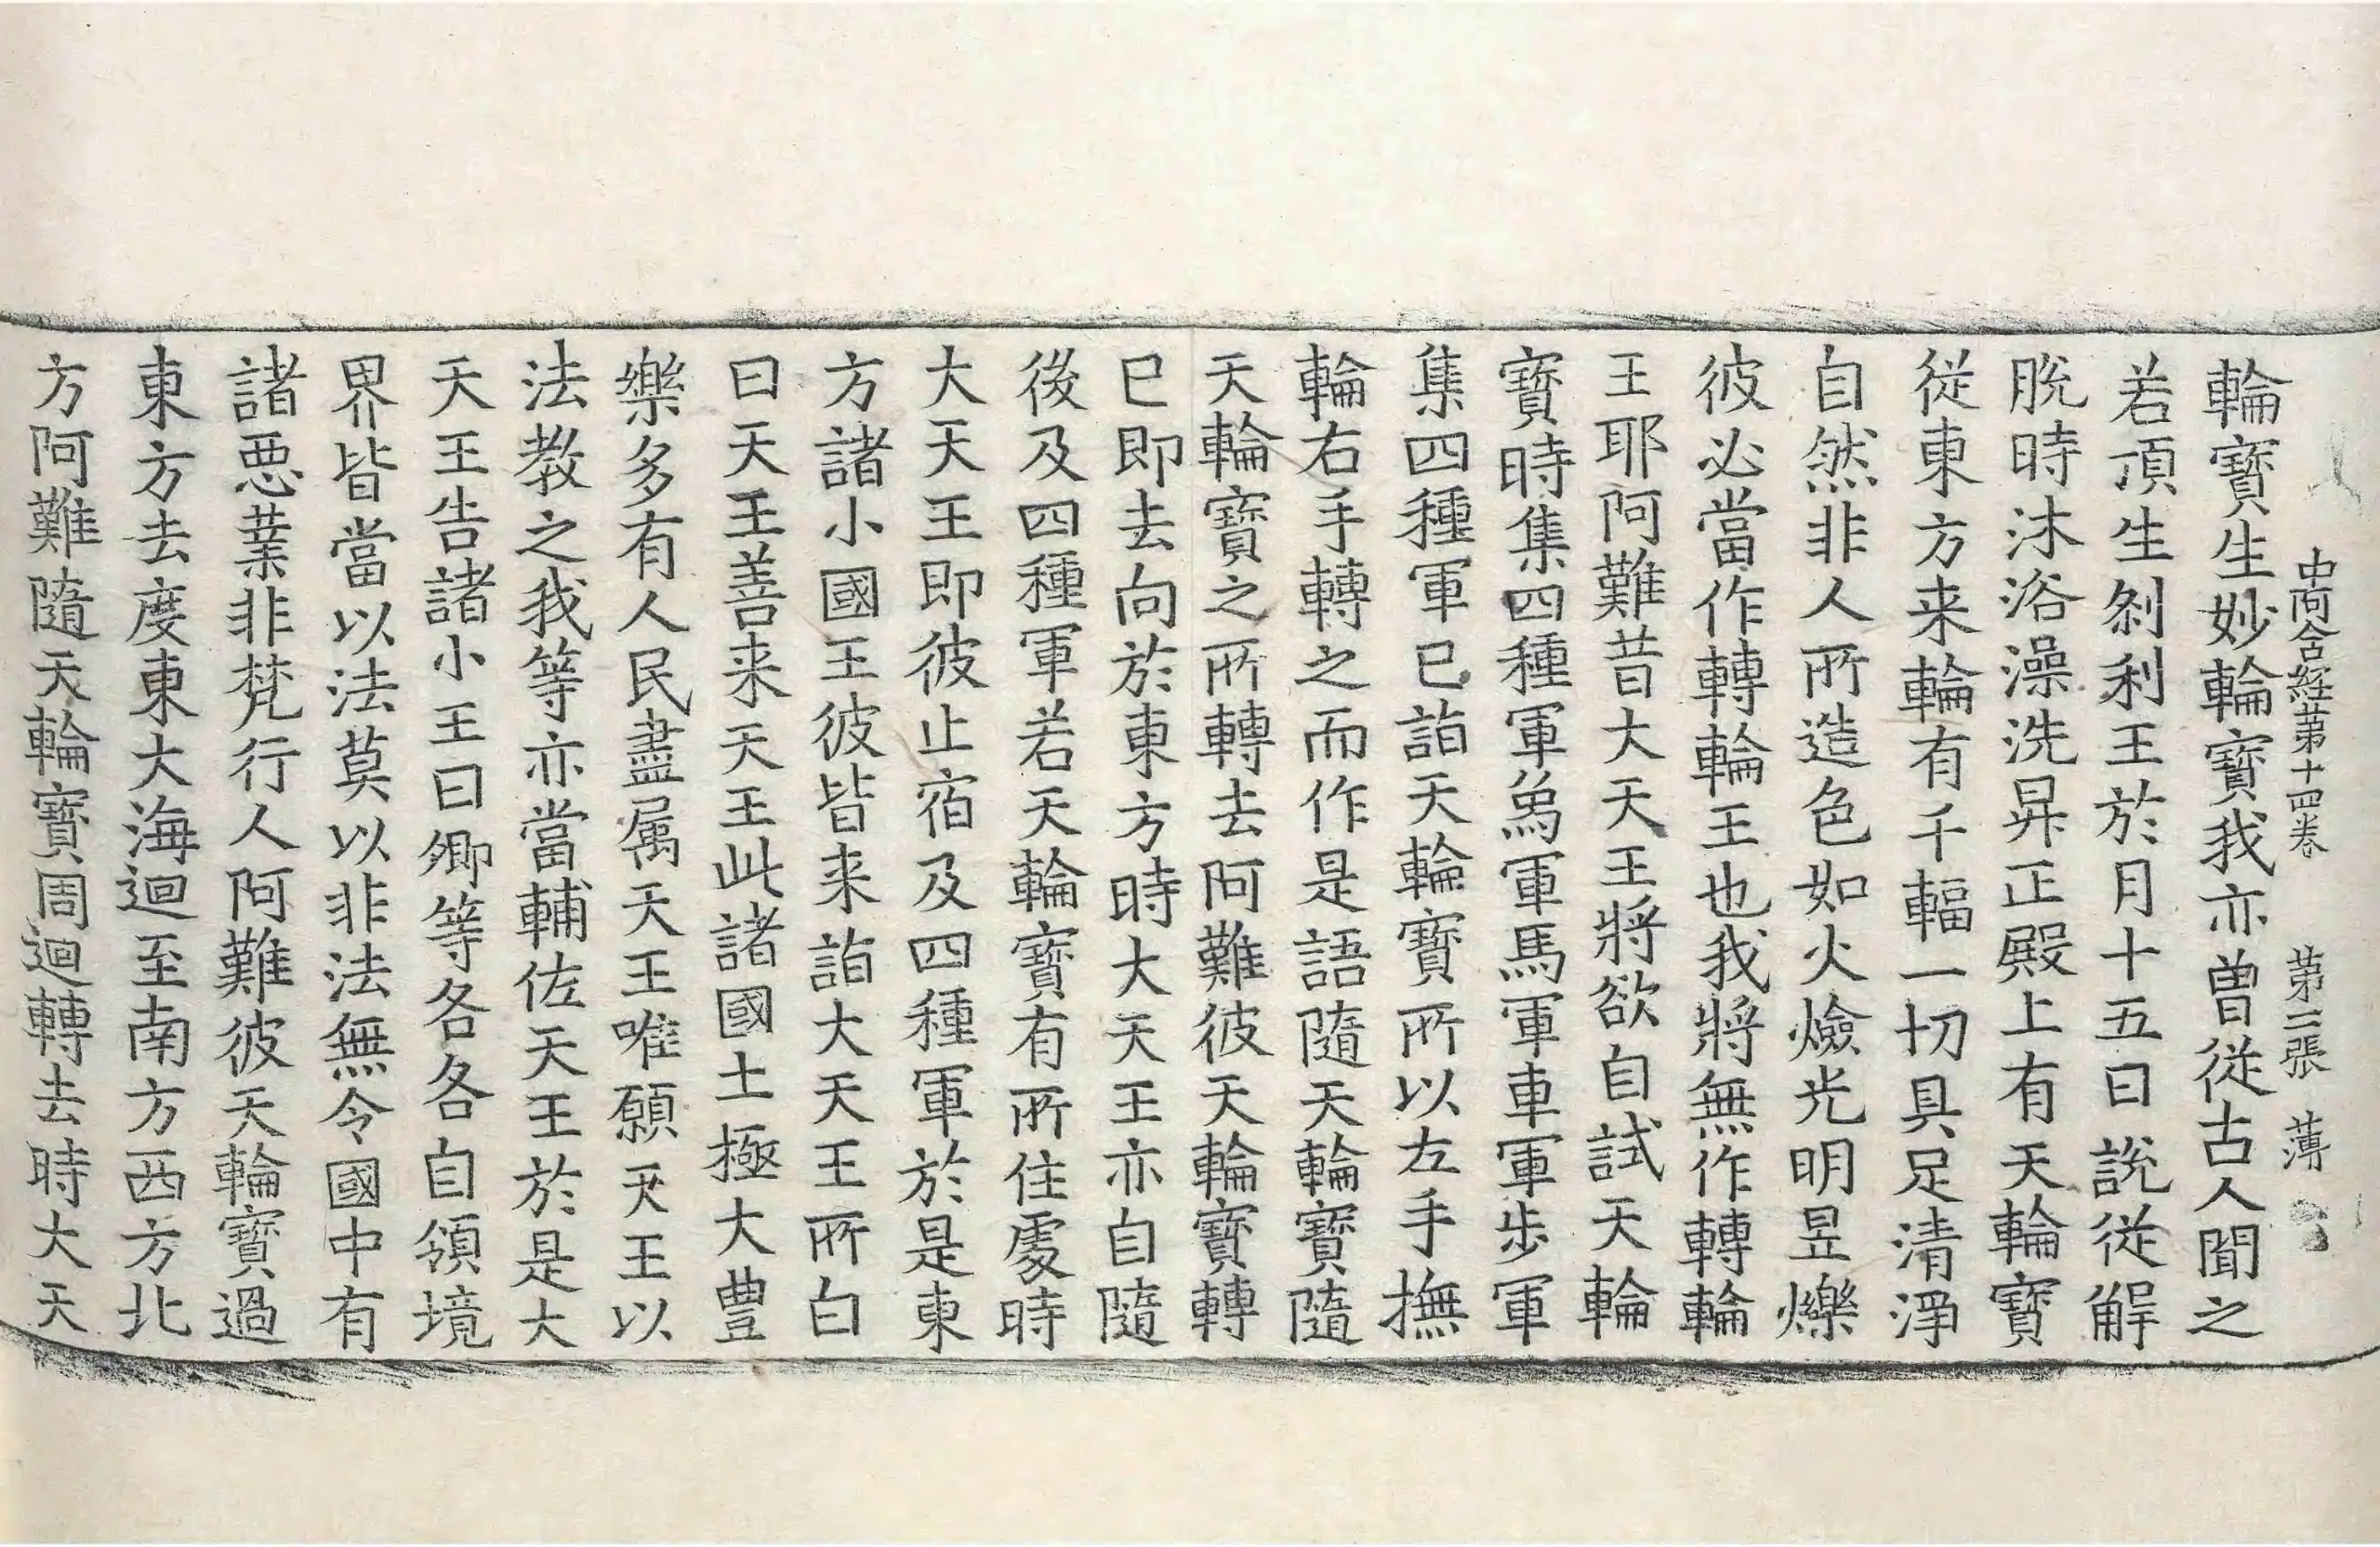 中阿含經第十四卷 第二張 薄
輪寶生妙輪寶我亦曽從古人聞之
若頂生剎利王於月十五日說從解
脫時沐浴澡洗昇正殿上有天輪寶
從東方来輪有千輻一切具足清淨
自然非人所造色如火爓光明昱爍
彼必當作轉輪王也我將無作轉輪
王耶阿難昔大天王將欲自試天輪
寶時集四種軍象軍馬軍車軍步軍
集四種軍已詣天輪寶所以左手撫
輪右手轉之而作是語隨天輪寶隨
天輪寶之所轉去阿難彼天輪寶轉
已即去向於東方時大天王亦自隨
後及四種軍若天輪寶有所住處時
大天王即彼止宿及四種軍於是東
方諸小國王彼皆来詣大天王所白
曰天王善来天王此諸國土極大豊
樂多有人民盡属天王唯願天王以
法教之我等亦當輔佐天王於是大
天王告諸小王曰卿等各各自領境
界皆當以法莫以非法無令國中有
諸惡業非梵行人阿難彼天輪寶過
東方去度東大海迴至南方西方北
方阿難隨天輪寶周迴轉去時大天